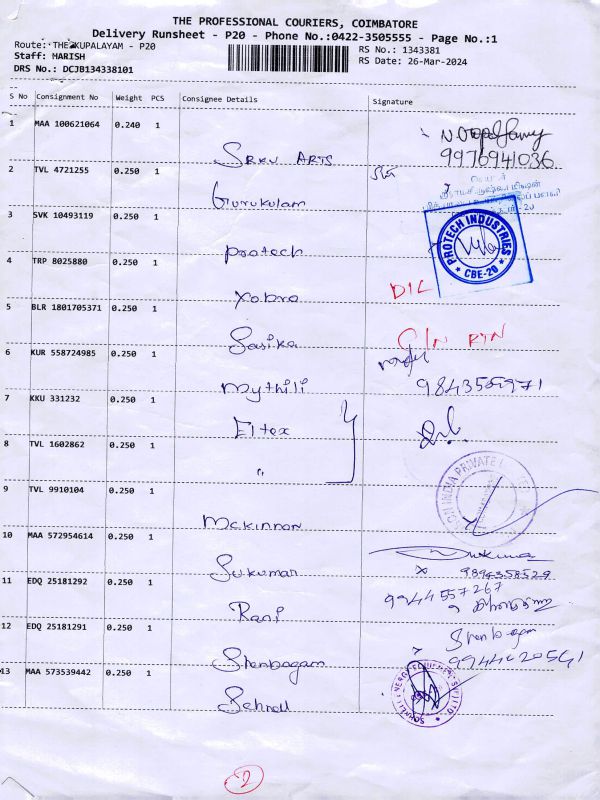 THE PROFESSIONAL COURIERS, COIMBATORE
Delivery Runsheet - P20 - Phone No.:0422-3505555 - Page No.:1
Route: THEKKUPALAYAM - P20
RS No.: 1343381
Staff: HARISH
RS Date: 26-Mar-2024
DRS No.: DCJB134338101
S No Consignment No Weight PCS Consignee Details Signature
1 MAA 100621064 0.240 1
SRKV ARTS
9976941036
2 TVL 4721255 0.250 1
Gurukulam
3 SVK 10493119 0.250 1
Protech
PROTECH INDUSTRIES
* CBE-20 *
4 TRP 8025880 0.250 1
Xobro
D/L
5 BLR 1801705371 0.250 1
Sasika
C/N RTN
6 KUR 558724985 0.250 1
Mythili
7 KKU 331232 0.250 1
Eltex
8 TVL 1602862 0.250 1
"
9 TVL 9910104 0.250 1
Mckinnon
10 MAA 572954614 0.250 1
Sukumar
9894358529
11 EDQ 25181292 0.250 1
Rani
9944557267
12 EDQ 25181291 0.250 1
Shenbagam
Shenbagam
13 MAA 573539442 0.250 1
Schnell
2